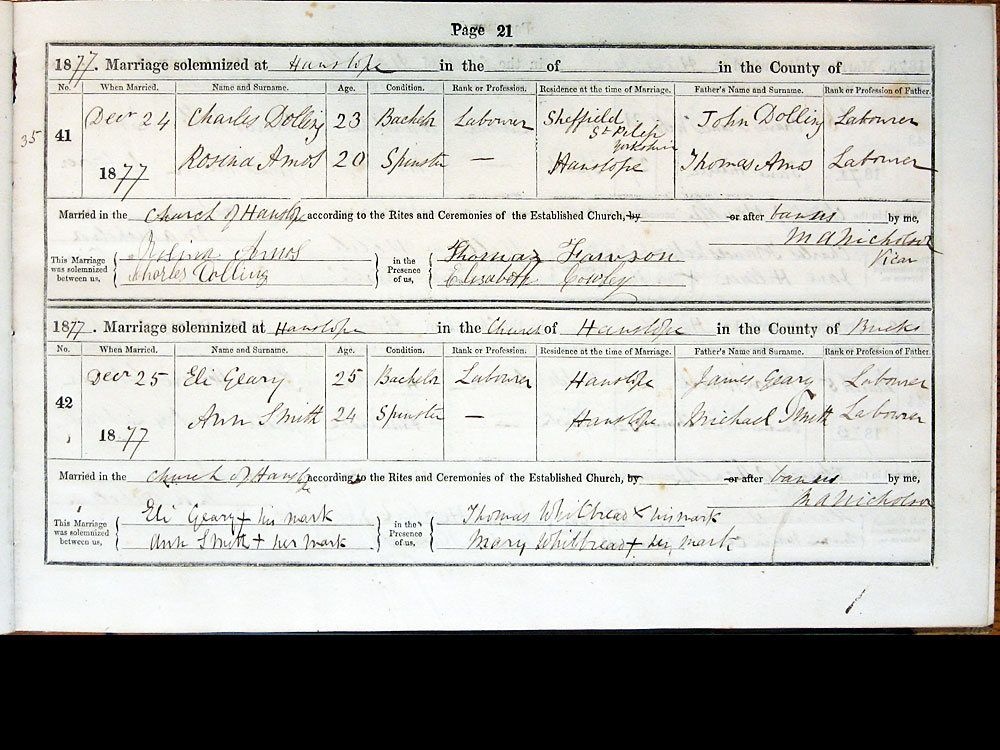 Page 21
1877. Marriage solemnized at Hanslope in the of in the County of
No. When Married. Name and Surname. Age. Condition. Rank or Profession. Residence at the time of Marriage. Father's Name and Surname. Rank or Profession of Father.
35 41 Decr 24 Charles Dolling 23 Bachelr Labourer Sheffield St Philip Yorkshire John Dolling Labourer
1877 Rosina Amos 20 Spinster — Hanslope Thomas Amos Labourer
Married in the Church of Hanslope according to the Rites and Ceremonies of the Established Church, by or after banns by me,
M A Nicholson
Vicar
This Marriage was solemnized between us, Rosina Amos in the Presence of us, Thomas
Charles Dolling Elizabeth Cowley
1877. Marriage solemnized at Hanslope in the Church of Hanslope in the County of Bucks
No. When Married. Name and Surname. Age. Condition. Rank or Profession. Residence at the time of Marriage. Father's Name and Surname. Rank or Profession of Father.
42 Decr 25 Eli Geary 25 Bachelr Labourer Hanslope James Geary Labourer
1877 Ann Smith 24 Spinster — Hanslope Michael Smith Labourer
Married in the Church of Hanslope according to the Rites and Ceremonies of the Established Church, by or after banns by me,
M A Nicholson
This Marriage was solemnized between us, Eli Geary + his mark in the Presence of us, Thomas Whitbread x his mark
Ann Smith + her mark Mary Whitbread + her mark